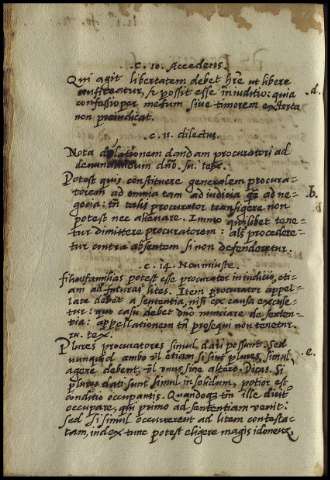 .c. 10. Accedens.
Qui agit libertatem debet hre ut libere
possit esse in iuditio: quia
confessio per metum sive timorem extorta
non preiudicat.
.c. 11. dilectus.
Nota dilationem dandam procuratori ad
duo. su. tex.
Potest quis constituere generalem procura-
torem ad omnia tam ad iuditia ad ne-
gotia: tn talis procurator transigere non
potest nec alienare. Immo quilibet tene-
tur dimittere procuratorem: als procedere-
tur contra absentem si non defenderetur.
.b.
.c. 14. Non iniuste.
filiusfamilias potest esse procurator in iuditio, eti-
am ad futuras lites. Item procurator appel-
lare debet a sententia, nisi ex causa excuse-
tur: quo casu debet dno nunciare de senten-
tia: appellationem tn prosequi non tenetur.
tex.
Plures procuratores simul dari possunt. Sed
nunquid ambo vl etiam si sint plures, simul
agere debent, vl unus sine altero. Dicas. Si
plures dati sunt simul in solidum, potior est
conditio occupantis. Quandoq tn ille dicit
occupare, qui primo ad sententiam venit:
sed si simul occurrerent ad litem contesta-
tam, iudex tunc potest eligere magis idoneu.
.d.
.e.